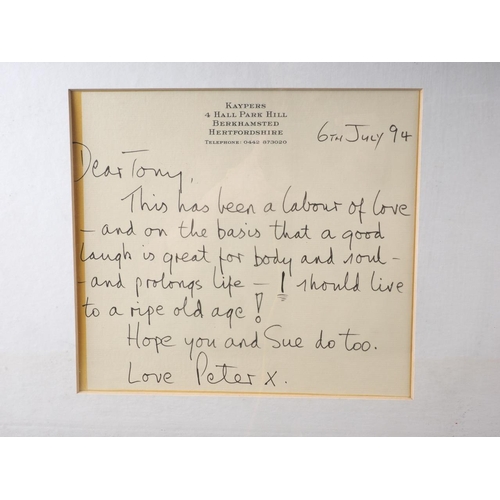 KAYPERS
4 HALL PARK HILL
BERKHAMSTED
HERTFORDSHIRE
TELEPHONE: 0442 873020
6TH JULY 94
Dear Tony,
This has been a labour of love
- and on the basis that a good
laugh is great for body and soul -
- and prolongs life - I should live
to a ripe old age!
Hope you and Sue do too.
Love Peter x.